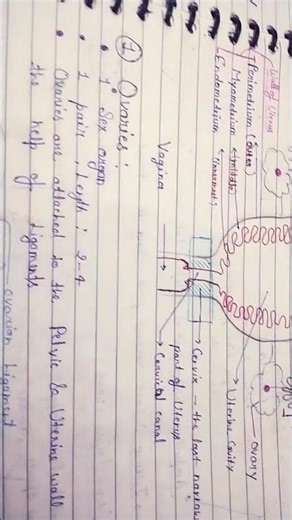 Wall of Uterus
Perimetrium (outer)
Myometrium (middle)
Endometrium (innermost)
ovary
Uterine Cavity
Cervix → the last narrow
part of Uterus
Cervical canal
Vagina
① Ovaries:
• 1° Sex organ
• 1 pair, Length: 2-4
• Ovaries are attached to the Pelvic & Uterine wall
the help of Ligaments
ovarian Ligament